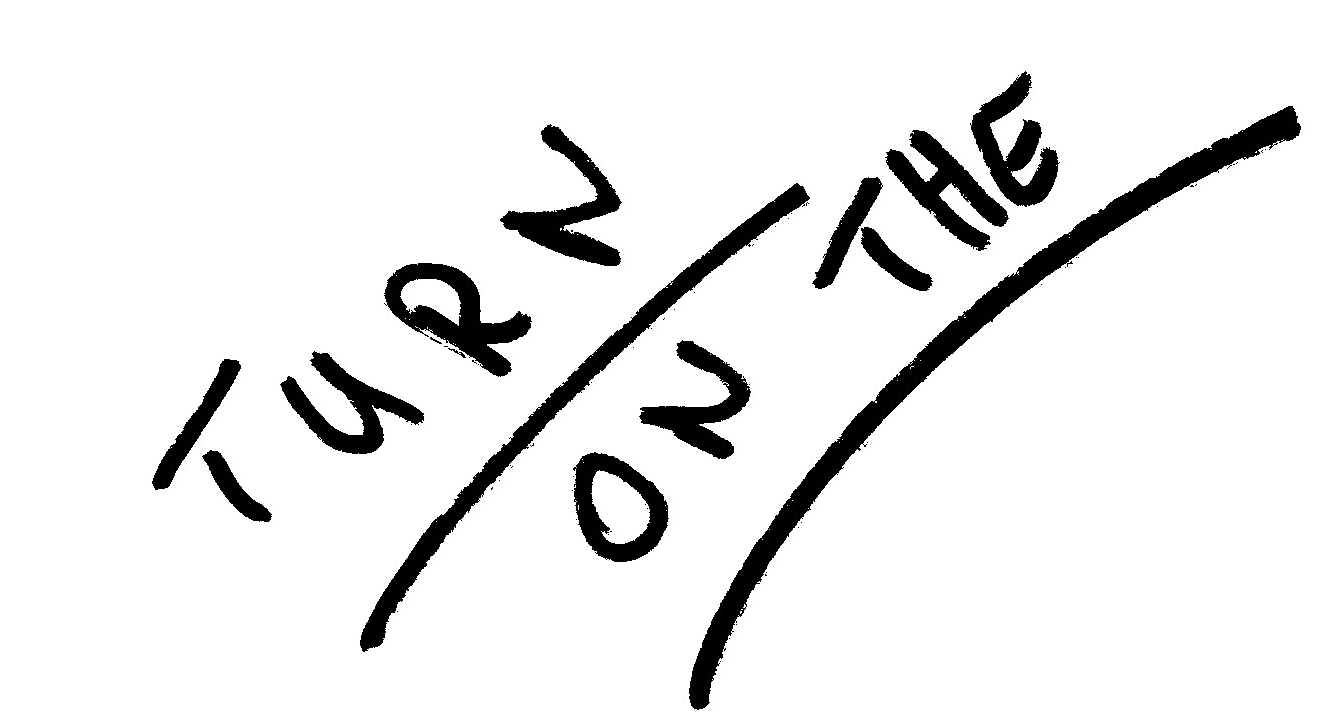 TURN
ON THE